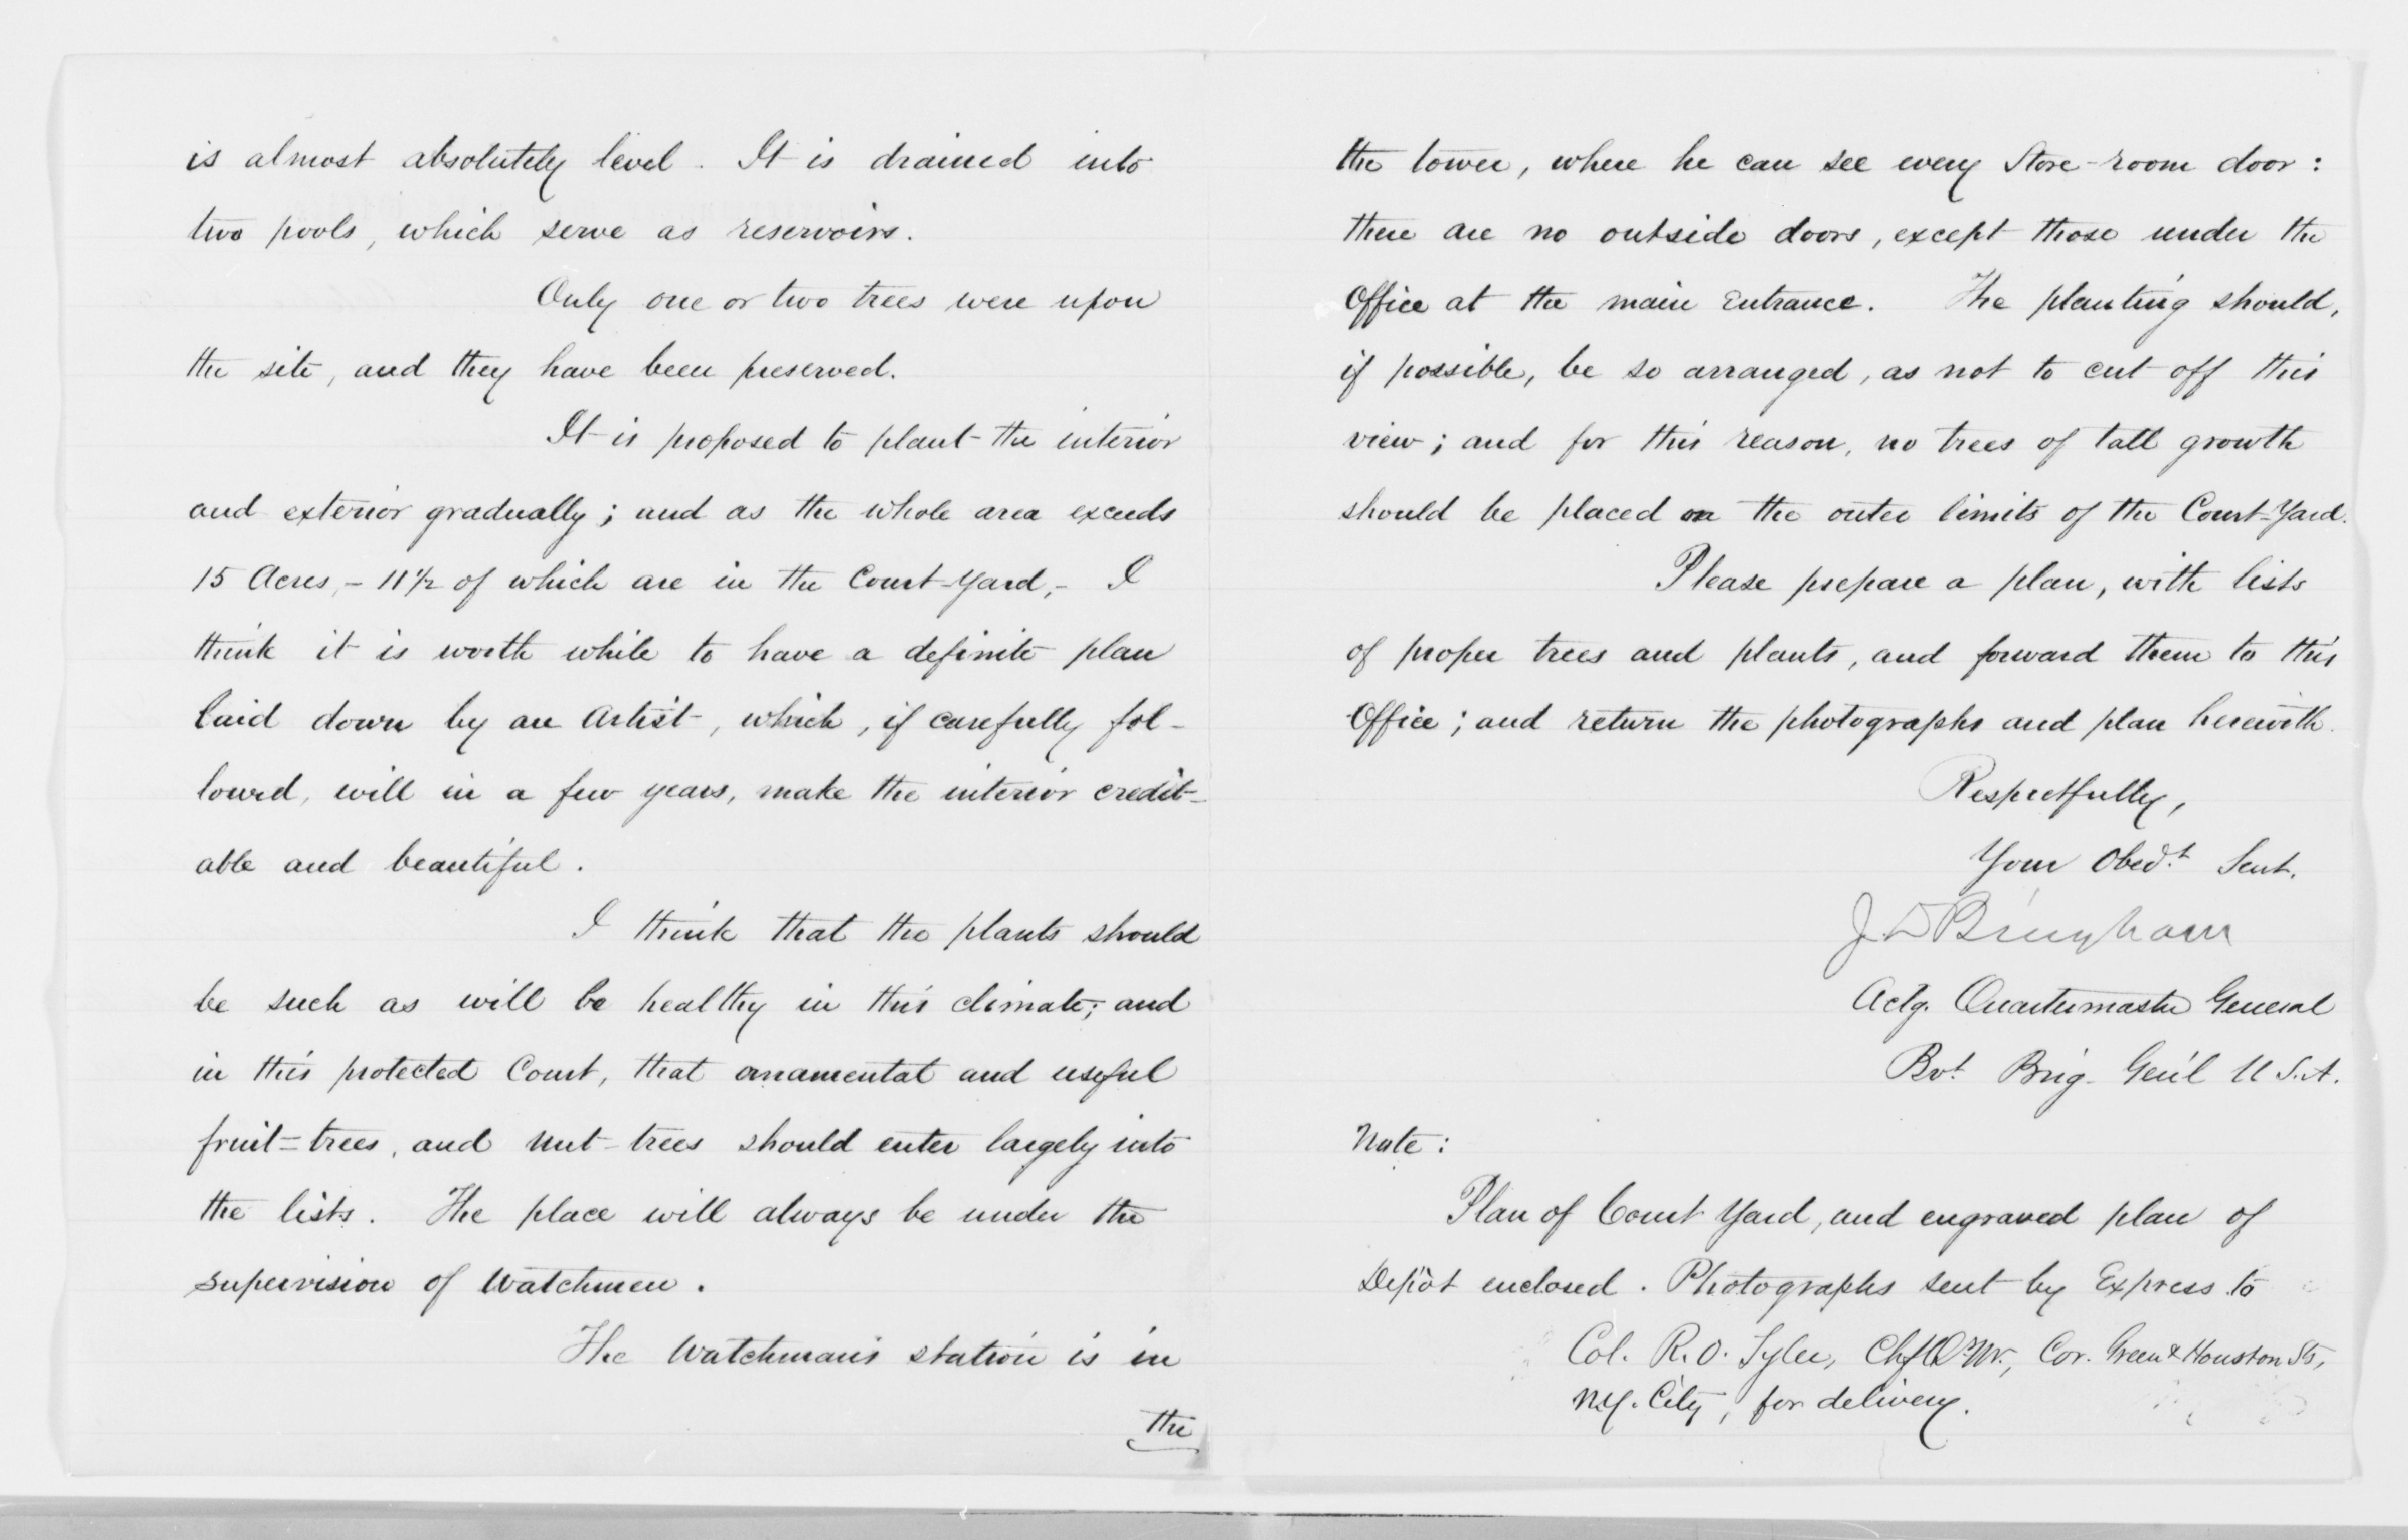 is almost absolutely level. It is drained into
two pools, which serve as reservoirs.
Only one or two trees were upon
the site, and they have been preserved.
It is proposed to plant the interior
and exterior gradually; and as the whole area exceeds
15 Acres, - 11 1/2 of which are in the Court-Yard, - I
think it is worth while to have a definite plan
laid down by an Artist, which, if carefully fol-
lowed, will in a few years, make the interior credit-
able and beautiful.
I think that the plants should
be such as will be healthy in this climate; and
in this protected Court, that ornamental and useful
fruit-trees, and nut-trees should enter largely into
the lists. The place will always be under the
supervision of Watchmen.
The Watchman's station is in
the
the tower, where he can see every Store-room door:
there are no outside doors, except those under the
Office at the main Entrance. The planting should,
if possible, be so arranged, as not to cut off this
view; and for this reason, no trees of tall growth
should be placed on the outer limits of the Court-Yard.
Please prepare a plan, with lists
of proper trees and plants, and forward them to this
Office; and return the photographs and plan herewith.
Respectfully,
Your Obed.t Servt.
J D Bingham
Actg. Quartermaster General
Bvt. Brig. Gen'l U.S.A.
Note:
Plan of Court Yard, and engraved plan of
Depôt enclosed. Photographs sent by Express to
Col. R. O. Tyler, Chf Q.Mr., Cor. Green & Houston Sts,
N.Y. City, for delivery.